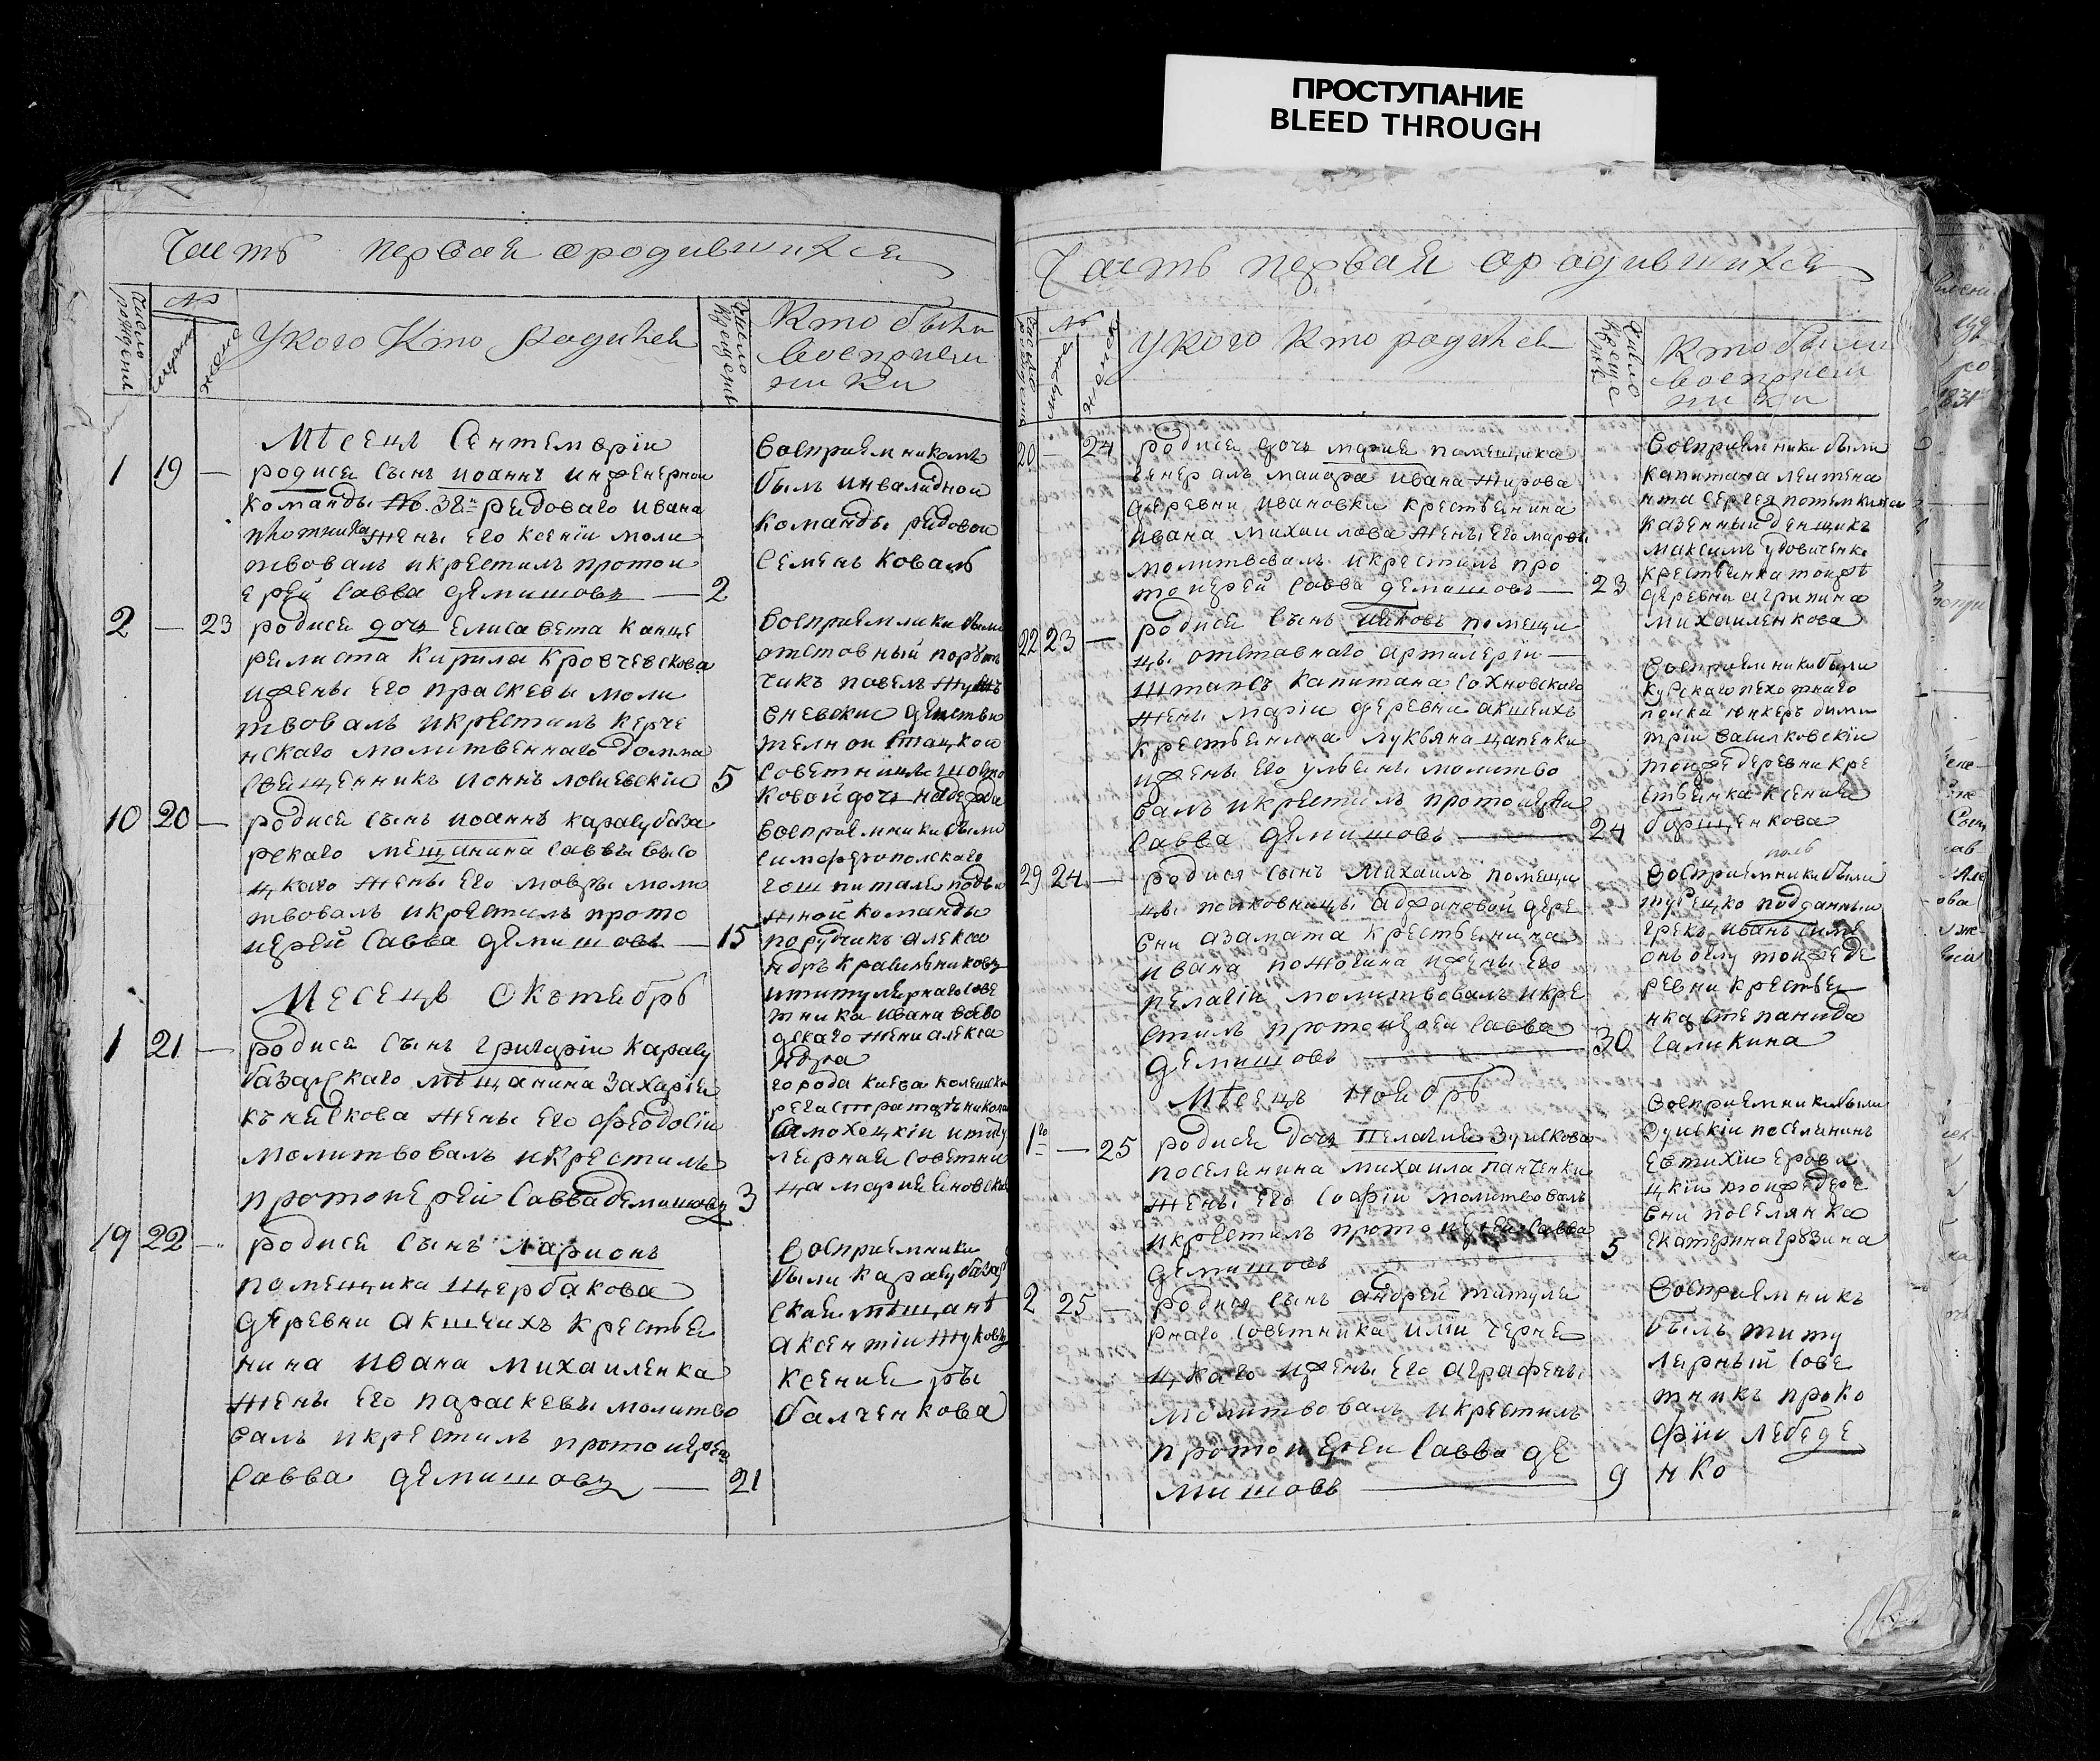 ПРОСТУПАНИЕ
BLEED THROUGH
Часть первая ородившихся
Число рожденя
№
мужеск
женс
Укого Кто Родился
Число крещенія
Кто были
Восприем
ники
Мѣсецъ Сентемврiи
1 19 — родися сынъ иоаннъ инженернои
команды №. 38й рядоваго ивана
плотника жены его ксенiи моли
твовалъ икрестилъ протои
ерей Савва демишовъ — 2
Восприемникомъ
былъ инвалиднои
команды рядовои
Семенъ Коваль
2 — 23 родися дочь елисавета канце
релиста кирила кровчевскова
ижены его праскевы моли
твовалъ икрестилъ керче
нскаго молитвеннаго домма
свещенникъ
5
Восприемники были
отставный поруть
чикъ павелъ
действи
телнои стацкои
советницы
ковой дочь надежда
10 20 — родися сынъ иоаннъ карасубаза
рскаго мещанина саввы высо
цкаго жены его мавры моли
твовалъ икрестилъ прото
иерей Савва демишовъ — 15
Восприемники были
симферополскаго
гошпиталя подви
жной команды
порутчикъ алекса
ндръ красильниковъ
ититулярнаго сове
тника ивана
жени алекса
ндра
Месецъ Октябрь
1 21 — родися сынъ григорiи карасу
базарскаго мѣщанина захарiя
жены его феодосiи
молитвовалъ икрестилъ
протоиерей Савва демишовъ 3
города киева колешски
регистраторъ никола
ититу
лярная советни
ца мария
19 22 — родися сынъ ларионъ
помещика щербакова
деревни акшеихъ крестья
нина ивана михаиленка
жены его параскевы молитво
валъ икрестилъ протоиерей
Савва демишовъ — 21
Восприемники
были карасубазар
ския мѣщанѣ
аксентiи жуковъ
ксения ры
балченкова
Часть первая ородившихся
Число рожденя
№
мужеск
женск
Укого Кто родился
Число креще
ния
Кто были
Восприем
ники
20 — 24 родися дочь мария помещика
генералъ маиора ивана жирова
деревни ивановки крестьянина
ивана михаилова жены его марфы
молитвовалъ икрестилъ про
тоиерей Савва демишовъ — 23
Восприемники были
капитана леитена
нта сергея потемкина
казенный денщикъ
максимъ удовиченко
крестьянка тойжѣ
деревни агрипина
михаиленкова
22 23 — родися сынъ ияковъ помещи
цы отставнаго артилерiи —
штапсъ капитана сохновскаго
жены марiи деревни акшеихъ
крестьянина лукьяна цапенки
ижены его ульяны молитво
валъ икрестилъ протоиерей
Савва демишовъ — 24
Восприемники были
курскаго пехотнаго
полка юнкеръ дими
трiи василковскiи
тойжѣ деревни кре
стьянка ксения
борщенкова
29 24 — родися сынъ михаилъ помещи
цы полковницы адфановой дере
вни азамата крестьянина
ивана пожогина ижены его
пелагiи молитвовалъ икре
стилъ протоиерей Савва
демишовъ — 30
Восприемники были
турецко подданныи
грекъ иванъ симе
оньоглу тойже де
ревни крестья
нка степанида
галикина
Мѣсецъ Ноябрь
1го — 25 родися дочь пелагия зуискова
поселянина михаила панченки
жены его софiи молитвовалъ
икрестилъ протоиерей Савва
демишовъ — 5
Восприемники были
зуискiи поселянинъ
евтихiи ерови
цкiи тоижедере
вни поселянка
екатерина грузина
2 25 — родися сынъ андрей титуля
рнаго советника илiи черне
цкаго ижены его аграфены
молитвовалъ икрестилъ
протоиерей Савва де
мишовъ — 9
Восприемникъ
былъ титу
лярный сове
тникъ проко
фiи лебеде
нко